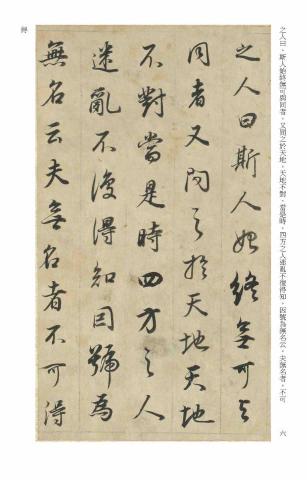 之人曰、斯人始終無可與同者、又問之於天地、天地不對、當是時、四方之人迷亂不復得知、因號為無名云、夫無名者、不可
六
之人曰斯人始終無可與
同者又問之於天地天地
不對當是時四方之人
迷亂不復得知因號為
無名云夫無名者不可得
得